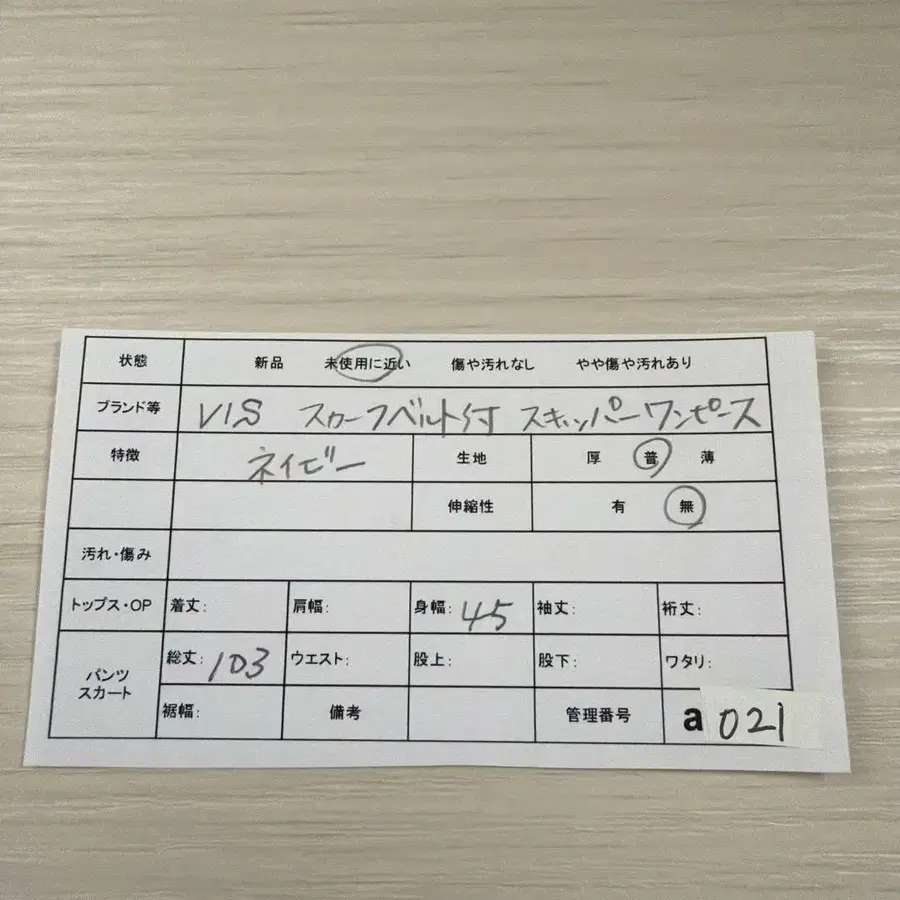 状態 新品 未使用に近い 傷や汚れなし やや傷や汚れあり
ブランド等 VIS スカーフベルト付 スキッパーワンピース
特徴 ネイビー 生地 厚 普 薄
伸縮性 有 無
汚れ・傷み
トップス・OP 着丈: 肩幅: 身幅: 45 袖丈: 裄丈:
パンツ スカート 総丈: 103 ウエスト: 股上: 股下: ワタリ:
裾幅: 備考 管理番号 a 021